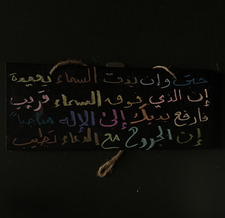 حتى وإن بدت السماء بعيدة
إن الذي فوق السماء قريب
فارفع يديك إلى الإله مناجيا
إن الجروح مع الدعاء تطيب